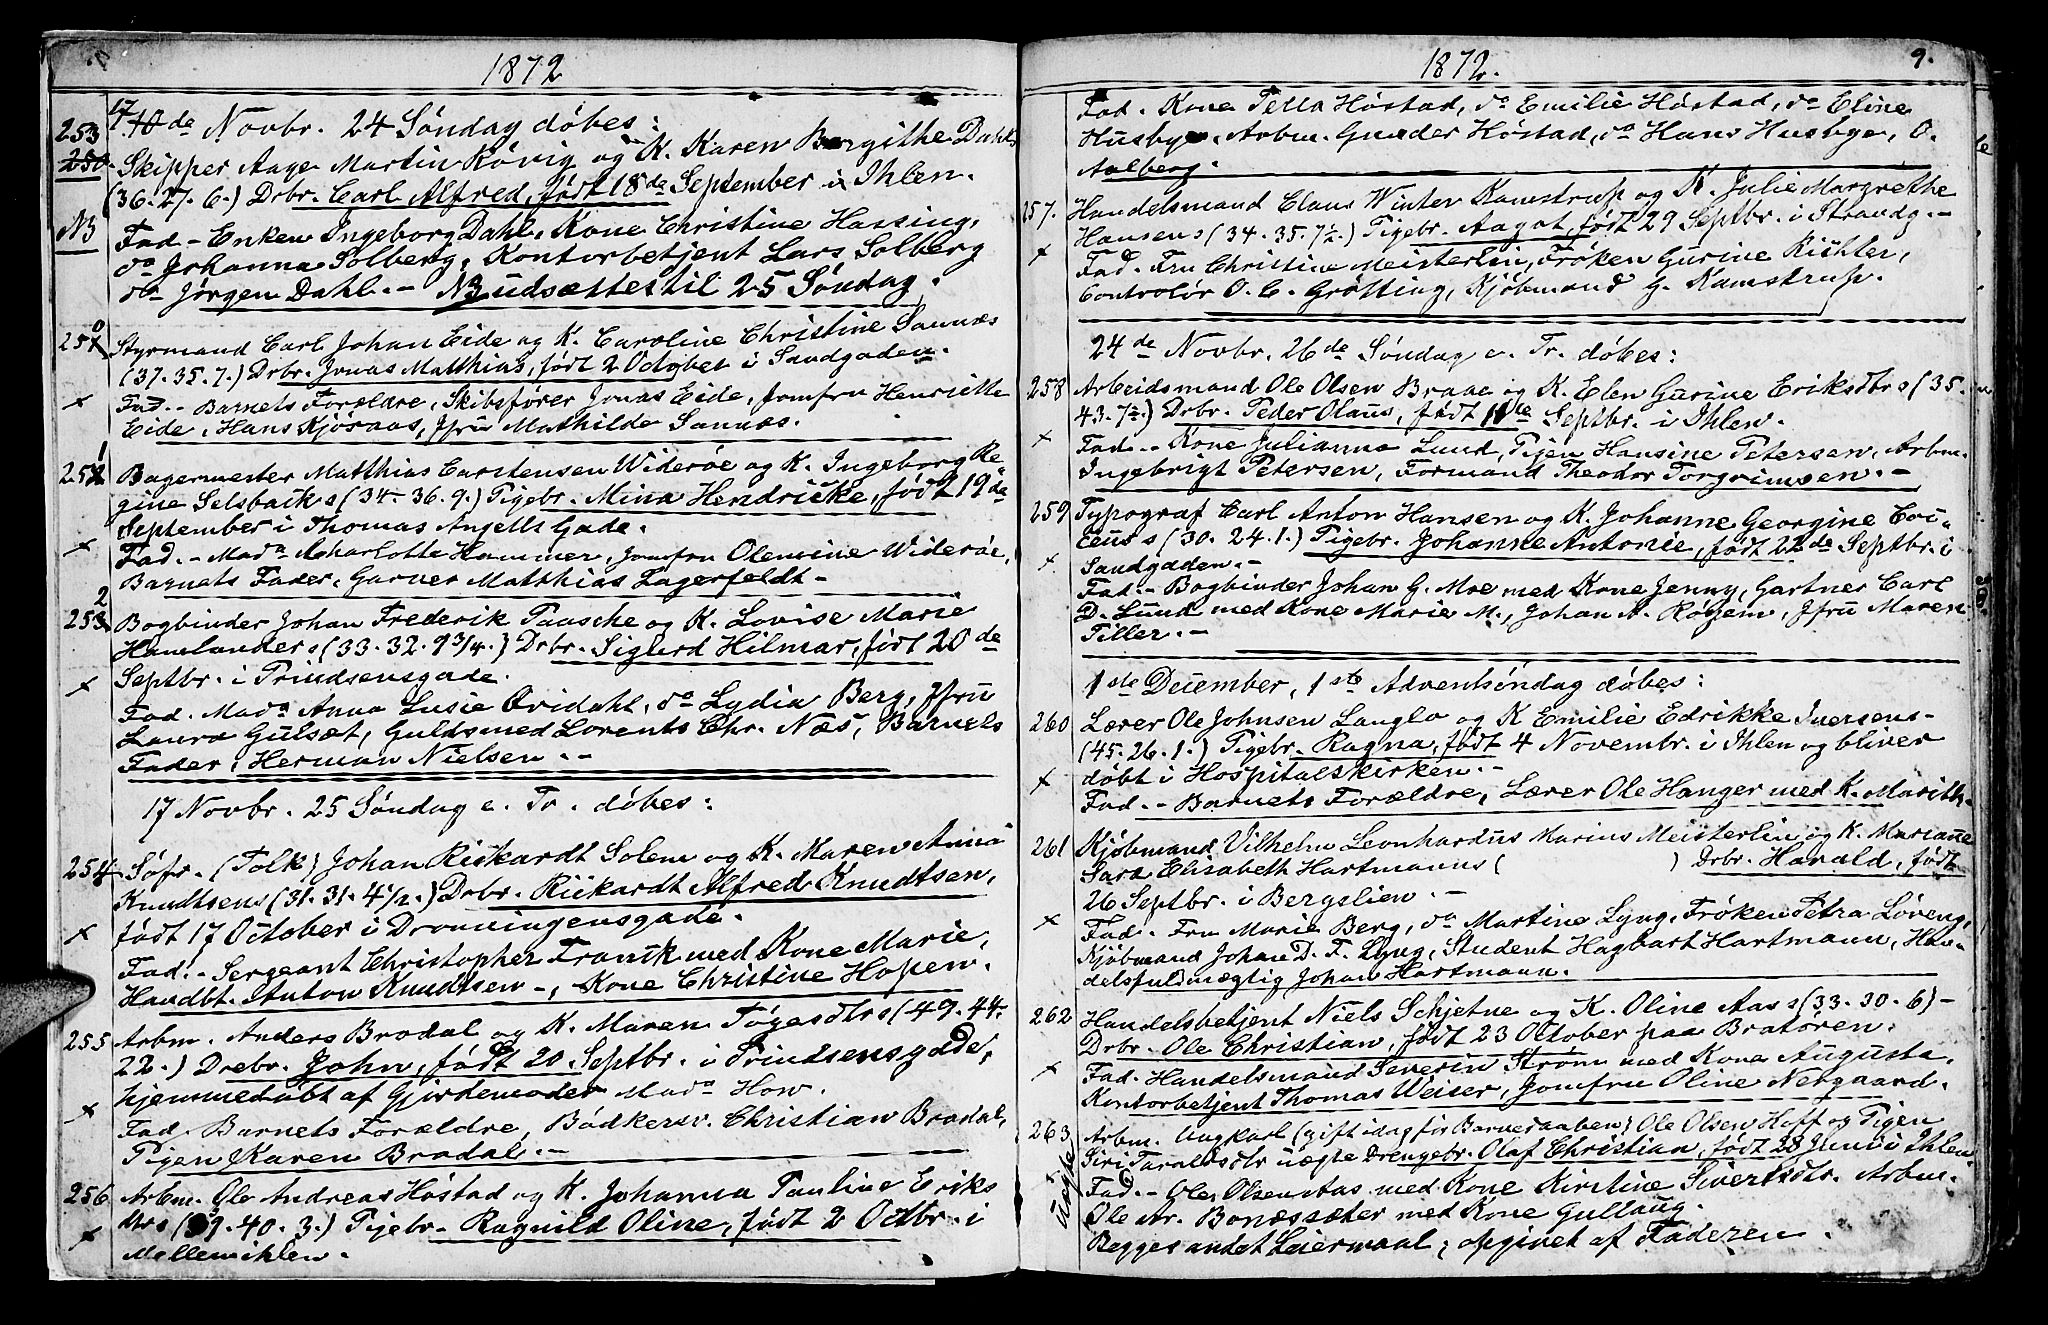 1872
17
10de Novbr. 24 Söndag döbes:
253
250. Skipper Aage Martin Rövig og K. Karen Bergithe Dahls
(36. 27. 6.) Drbr. Carl Alfred, födt 18de September i Ihlen.
NB Fad. - Enken Ingeborg Dahl, Kone Christine Hassing,
do Johanna Solberg, Kontorbetjent Lars Solberg
do Jörgen Dahl. - NB udsættes til 25 Söndag.
0
251 Styrmand Carl Johan Eide og K. Caroline Christine Sannæs
(37. 35. 7.) Drbr. Jonas Matthias, födt 2 October i Sandgaden.
x Fad. - Barnets Forældre, Skibsförer Jonas Eide, Jomfru Henriette
Eide, Hans Kjöraas, Jfru Mathilde Sannæs.
1
252 Bagermester Matthias Carstensen Wideröe og K. Ingeborg Re
gine Selsbaks (34. 36. 9.) Pigebr. Mina Hendrikke, födt 19de
September i Thomas Angells Gade.
x Fad. - Mada Charlotte Hammer, Jomfru Olenvine Wideröe,
Barnets Fader, Garver Matthias Lagerfeldt -
2
253 Bogbinder Johan Frederik Paasche og K. Lovise Marie
Hamlanders (33. 32. 9 3/4.) Drbr. Sigurd Hilmar, födt 20de
Septbr. i Prindsensgade.
x Fad. Mada Anna Lusie Qvidahl, do Lydia Berg, Jfru
Laura Gulsæt, Guldsmed Lorents Chr. Næs, Barnets
Fader, Herman Nielsen. -
17 Novbr. 25 Söndag e. Tr. döbes:
254 Söfr. (Tolk) Johan Rickardt Solem og K. Maren Anna
Knudtsens (31. 31. 4 1/2.) Drbr. Rickardt Alfred Knudtsen,
födt 17 October i Dronningensgade.
x Fad. - Sergeant Christopher Franck med Kone Marie,
Handbt. Anton Knudtsen -, Kone Christine Hopen.
255 Arbm. Anders Brodal og K. Maren Tögesdtrs (49. 44.
22.) Drebr. John, födt 20. Septbr. i Prindsensgade,
hjemmedöbt af Gjordemoder Mada How.
x Fad. Barnets Forældre, Bödkersv. Christian Brodal,
Pigen Karen Brodal. -
256 Arbm. Ole Andreas Höstad og K. Johanna Pauline Eriks
dtrs (39. 40. 3.) Pigebr. Ragnild Oline, födt 2 Octbr. i
x Mellemihlen.
1872. 9.
Fad. Kone Pella Höstad, do Emilie Höstad, do Eline
Husbye, Arbm. Gunder Höstad, do Hans Husbye, O.
Aalberg.
257. Handelsmand Claus Winter Kamstrup og K. Julie Margrethe
Hansens (34. 35. 7 1/2.) Pigebr. Aagot, födt 29 Septbr. i Strandg. -
x Fad. Fru Christine Meisterlin, Fröken Gurine Richter,
Controlör O. C. Grötting, Kjöbmand G. Kamstrup.
24de Novbr. 26de Söndag e. Tr. döbes:
258 Arbeidsmand Ole Olsen Braae og K. Elen Gurine Eriksdtrs (35.
43. 7 1/2.) Drbr. Peder Olaus, födt 11te Septbr. i Ihlen.
x Fad. - Kone Julianna Lund, Pigen Hansine Petersen, Arbm.
Ingebrigt Petersen, Formand Theodor Torgrimsen. -
259 Typograf Carl Anton Hansen og K. Johanne Georgine Coi-
ceus s (30. 24. 1.) Pigebr. Johanne Antonie, födt 22de Septbr. i
x Sandgaden. -
Fad. - Bogbinder Johan G. Moe med Kone Jenny, Gartner Carl
D. Lund med Kone Marie M., Johan A. Röyem, Jfru Maren
Tiller. -
1ste December, 1ste Adventsöndag döbes:
260 Lærer Ole Johnsen Langlo og K Emilie Edrikke Iversens-
(45. 26. 1.) Pigebr. Ragna, födt 4 Novembr. i Ihlen og bliver
x döbt i Hospitalskirken. -
Fad. - Barnets Forældre, Lærer Ole Hanger med K. Marith.
261 Kjöbmand Vilhelm Leonhardus Marius Meisterlin og K. Mariane
Sara Elisabeth Hartmanns ( ) Drbr. Harald, födt
26 Septbr. i Bergslien. -
x Fad. Fru Marie Berg, do Martine Lyng, Fröken Petra Löveng,
Kjöbmand Johan D. F. Lyng, Student Hagbart Hartmann, Han-
delsfuldmægtig Johan Hartmann.
262 Handelsbetjent Niels Schjetne og K. Oline Aas s (33. 30. 6) -
Drbr. Ole Christian, födt 23 October paa Bratören.
x Fad. Handelsmand Severin Ström med Kone Augusta,
Kontorbetjent Thomas Weiser, Jomfru Oline Nergaard.
263 Arbm. Ungkarl (gift idag för Barnedaaben) Ole Olsen Hoff og Pigen
Siri Taraldsdtr uægte Drengebr. Olaf Christian, födt 28 Juni i Ihlen
Uægte Fad. - Ole Olsen Aas med Kone Kirstine Sivertsdtr. Arbm.
Ole Ar. Bonæssæter med Kone Gullaug.
Begges andet Leiermaal, opgivet af Faderen.